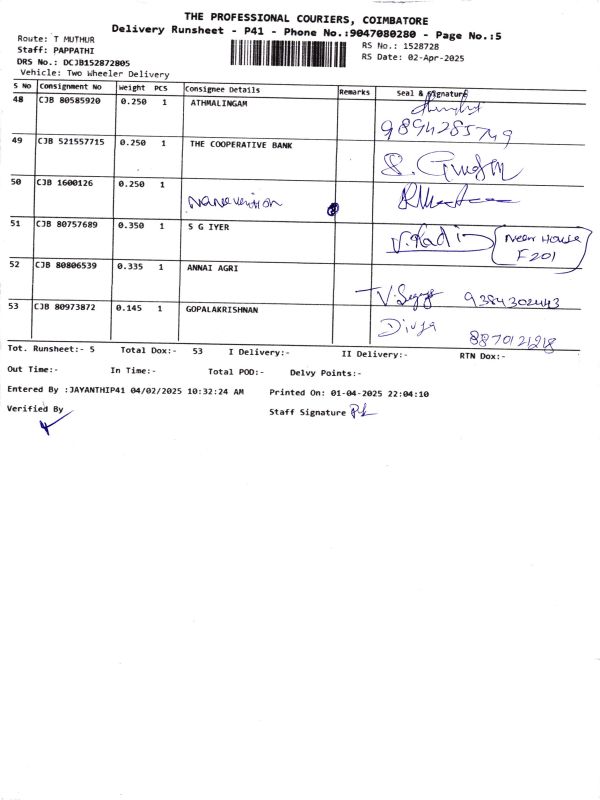 THE PROFESSIONAL COURIERS, COIMBATORE
Delivery Runsheet - P41 - Phone No.:9047080280 - Page No.:5
Route: T MUTHUR
RS No.: 1528728
Staff: PAPPATHI
RS Date: 02-Apr-2025
DRS No.: DCJB152872805
Vehicle: Two Wheeler Delivery
S No Consignment No Weight PCS Consignee Details Remarks Seal & Signature
48 CJB 80585920 0.250 1 ATHMALINGAM
9894285749
49 CJB 521557715 0.250 1 THE COOPERATIVE BANK
50 CJB 1600126 0.250 1
51 CJB 80757689 0.350 1 S G IYER V. Kadi Near House
F 201
52 CJB 80806539 0.335 1 ANNAI AGRI
9384302443
53 CJB 80973872 0.145 1 GOPALAKRISHNAN Divya
8870121218
Tot. Runsheet:- 5 Total Dox:- 53 I Delivery:- II Delivery:- RTN Dox:-
Out Time:- In Time:- Total POD:- Delvy Points:-
Entered By :JAYANTHIP41 04/02/2025 10:32:24 AM Printed On: 01-04-2025 22:04:10
Verified By
Staff Signature